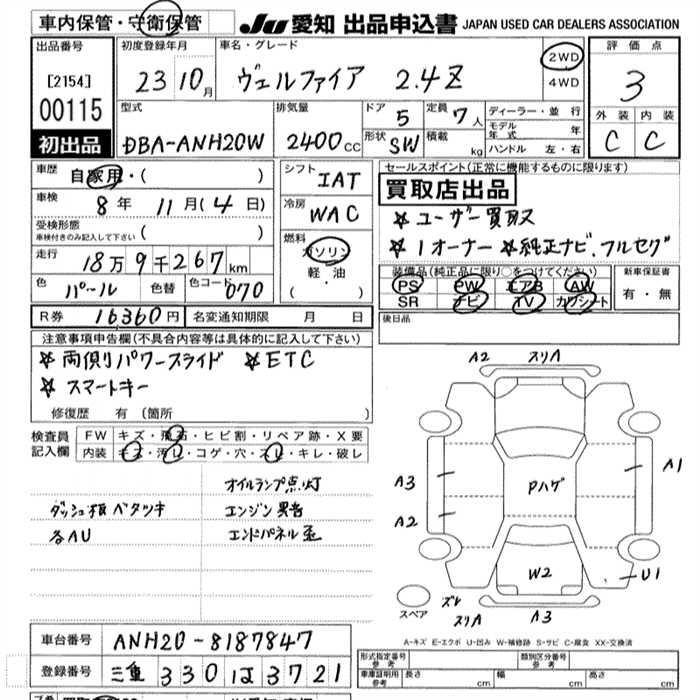 車内保管・守衛保管
JU 愛知 出品申込書 JAPAN USED CAR DEALERS ASSOCIATION
出品番号
[2154]
00115
初出品
初度登録年月
23 10月
車名・グレード
ヴェルファイア 2.4Z
2WD
4WD
評価点
3
外装 内装
C C
型式
DBA-ANH20W
排気量
2400cc
ドア 5
形状 SW
定員 7人
積載 kg
ディーラー・並行
モデル年式 年
ハンドル 左・右
車歴 自家用・( )
車検 8年 11月(4日)
受検形態
車検付きのみ記入して下さい ( )
走行 18万9千267km
色 パール 色替 色コード 070
R券 16360円 名変通知期限 月 日
シフト IAT
冷房 WAC
燃料 ガソリン
軽・油
( ・ )
セールスポイント(正常に機能するものに限ります)
買取店出品
☆ユーザー買取
☆1オーナー ☆純正ナビ、フルセグ
装備品(純正品に限り○をつけてください)
PS PW エアB AW
SR ナビ TV カワシート
新車保証書
有・無
後日品
注意事項申告欄(不具合内容等は具体的に記入して下さい)
☆両側パワースライド ☆ETC
☆スマートキー
修復歴 有 (箇所 )
検査員記入欄
FW キズ・飛石・ヒビ割・リペア跡・X要
内装 キズ・汚れ・コゲ・穴・スレ・キレ・破レ
オイルランプ点灯
ダッシュ板ベタツキ エンジン異音
各AU エンドパネル歪
A2 スリA
A3
A2
A1
Pハゲ
W2
U1
スペア
ズレ
スリA
A3
A-キズ E-エクボ U-凹み W-補修跡 S-サビ C-腐食 XX-交換済
車台番号 ANH20-8187847
登録番号 三重 330 は 3721
形式指定番号 参考
類別区分番号 参考
車庫証明用 参考 長さ cm 幅 cm 高さ cm